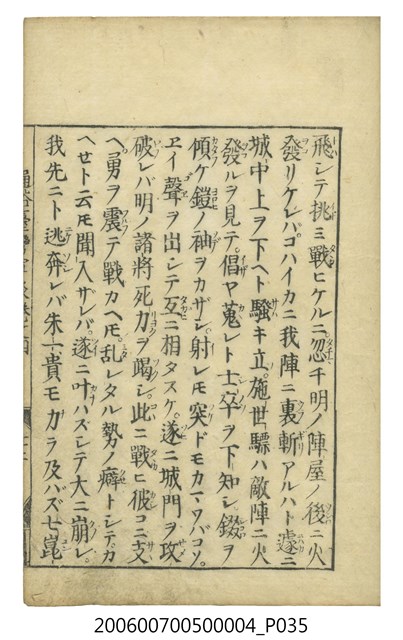 飛シテ挑ミ戰ヒケルニ忽チ明ノ陣屋ノ後ニ火
發リケレバコハイカニ我陣ニ裏斬アルハト遽ニ
城中上ヲ下ヘト騷キ立施世驃ハ敵陣ニ火
發ルヲ見テ倡ヤ蒐レト士卒ヲ下知シ錣ヲ
傾ケ鎧ノ袖ヲカザシ射レ𪜈突ドモカマワバコソ
ヱイ聲ヲ出シテ互ニ相タスケ遂ニ城門ヲ攻
破レバ明ノ諸將死力ヲ竭シ此ニ戰ヒ彼コニ支
ヘ勇ヲ震テ戰カヘ𪜈乱レタル勢ノ癖トシテカ
ヘセト云𪜈聞入サレバ遂ニ叶ハズシテ大ニ崩レ
我先ニト逃奔レバ朱一貴モ力ラ及バズ七崑
200600700500004_P035